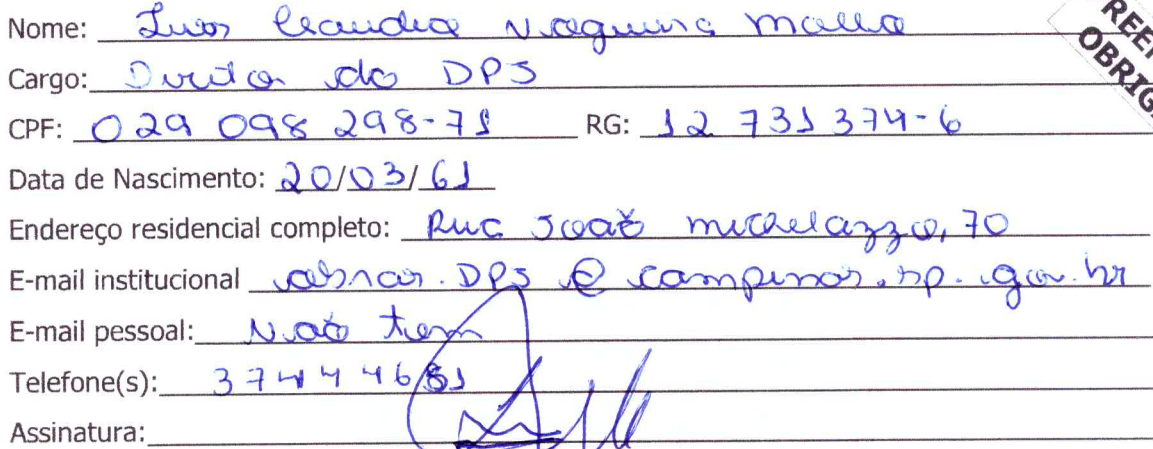 Nome: Luis Claudio Nogueira Mollo
REEN
Cargo: Diretor do DPJ
OBRIGA
CPF: 029 098 298-71 RG: 12 731 374-6
Data de Nascimento: 20/03/61
Endereço residencial completo: Rua João Michelazzo, 70
E-mail institucional DPJ @ campinas.sp.gov.br
E-mail pessoal: Não tem
Telefone(s): 374446
Assinatura: